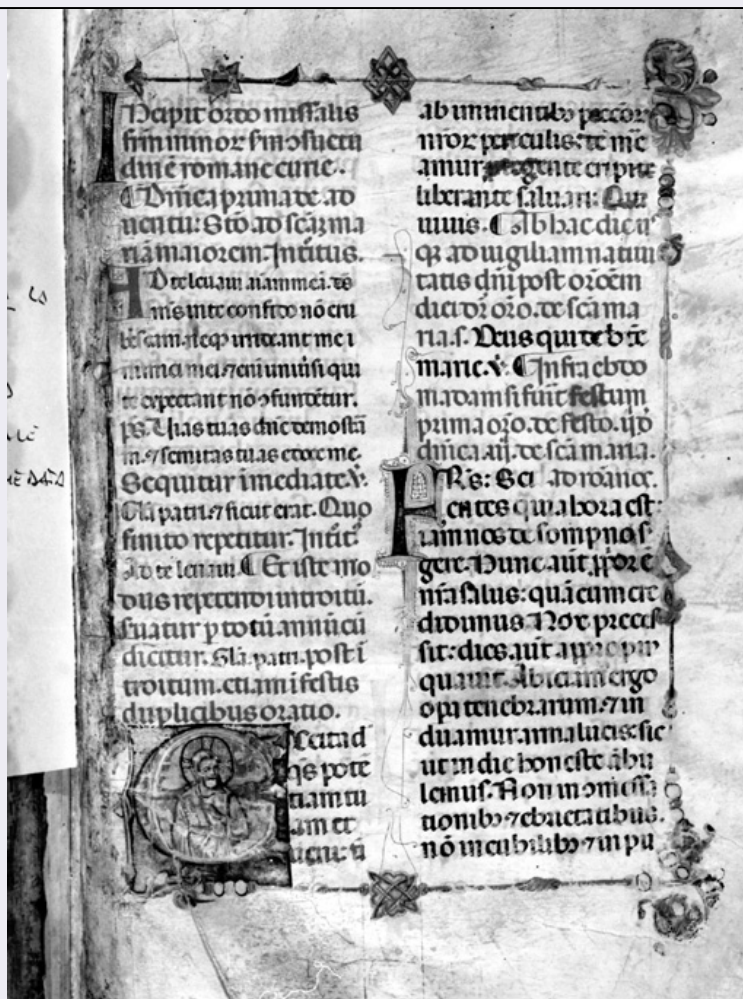 Incipit ordo missalis
frm̄ minoꝝ s̄m ɔsuetu
dinē romane curie.
Dn̄ica prima de ad
uentu: Stō. ad scām ma
riā maiorem. Introitus.
AD te leuaui aīam meā. ds̄
ms̄ in te confido nō eru
bescam. neqꝫ irrideant me i
nimici mei. ⁊ eīn uniūsi qui
te expectant nō ɔfundētur.
ps̄. Uias tuas dn̄e demōstrā
m̄. ⁊ semitas tuas edoce me.
Sequitur īmediate. V̄.
Gl̄a patri. ⁊ sicut erat. Quo
finito repetitur. Introit̄.
Ad te leuaui. Et iste mo
dus repetendi introitū.
seruatur p totū annū cū
dicitur. Gl̄a patri. post ī
troitum. etiam ī festis
duplicibus oratio.
Excita d
q̄s potē
tiam tu
am et
ueni: ū
ab imminentibꝫ peccoꝝ
nr̄oꝝ periculis: te me
amur ꝓtegente eripi te
liberante saluari: Qui
uiuis. Ab hac die us
qꝫ ad uigiliam natiui
tatis dn̄i post or̄oem
diei dr̄ or̄o. de scā ma
ria. s. Deus qui de b̄te
marie. V̄. Infra ebdo
madam si fuīt festum
prima or̄o. de festo. ii̊. d̄
dn̄ica. iii̊. de scā maria.
FRs̄: Sci ad romanos.
entes quia hora est:
iam nos de sompno s̄
gere. Nunc aūt ꝓpior ē
nr̄a salus: quā cum cre
didimus. Nox preces
sit: dies aūt appropin
quauit. Abiciam̄ ergo
opa tenebrarum. ⁊ in
duamur arma lucis: sic
ut in die honeste ābu
lemus. Non in ɔmessa
tionibꝫ ⁊ ebrietatibus.
nō in cubilibꝫ ⁊ inpu